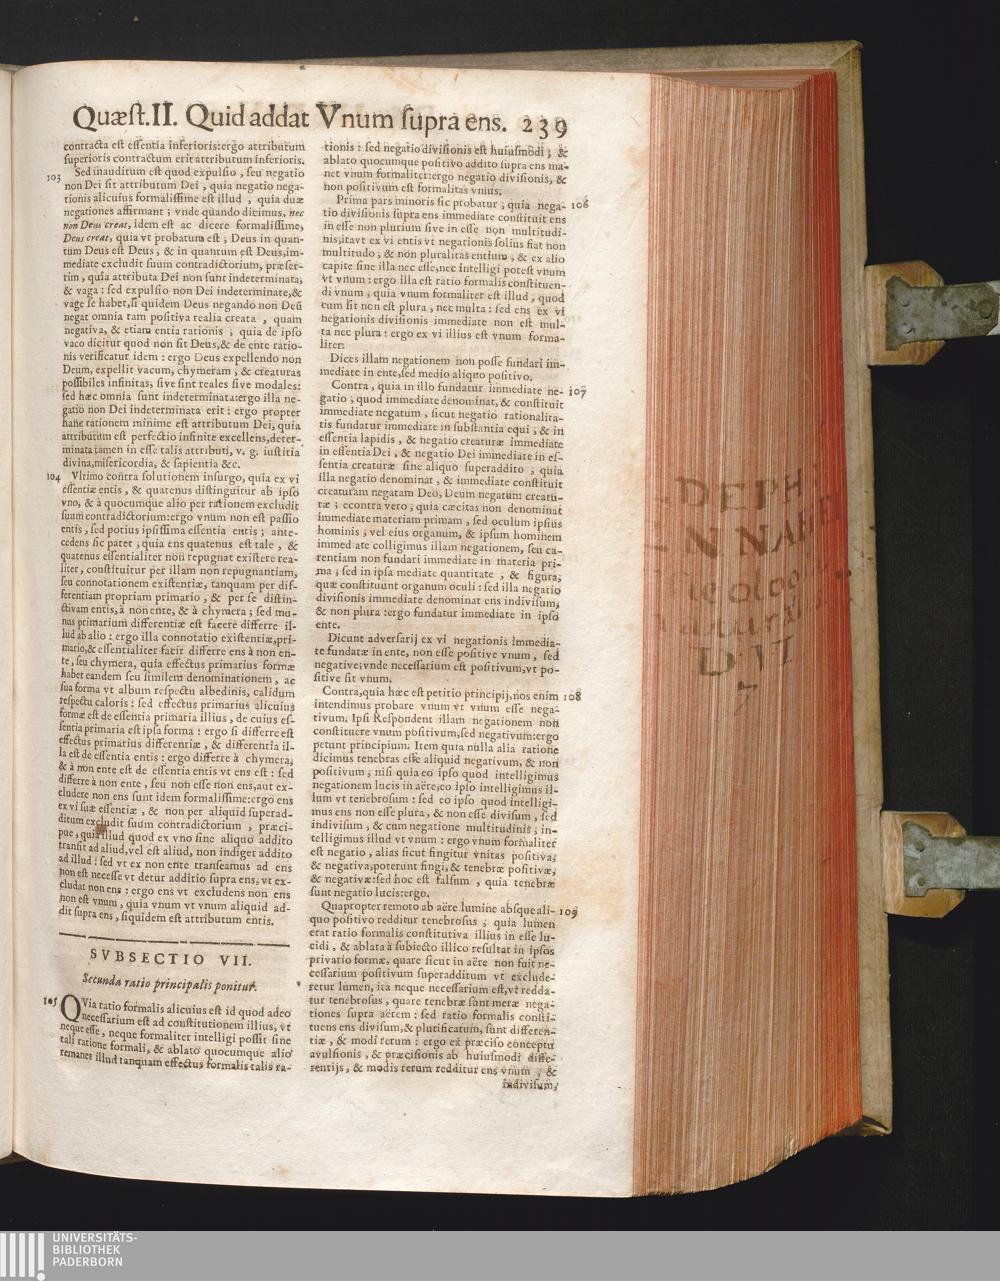 Quæſt.II. Quid addat Vnum ſupra ens. 239
contracta eſt eſſentia inferioris:ergo attributum
ſuperioris contractum erit attributum inferioris.
103 Sed inauditum eſt quod expulſio, ſeu negatio
non Dei ſit attributum Dei, quia negatio nega-
tionis alicuius formaliſſime eſt illud, quia duæ
negationes affirmant; vnde quando dicimus, nec
non Deus creat, idem eſt ac dicere formaliſſime,
Deus creat, quia vt probatum eſt; Deus in quan-
tum Deus eſt Deus, & in quantum eſt Deus,im-
mediate excludit ſuum contradictorium, præſer-
tim, quia attributa Dei non ſunt indeterminata;
& vaga: ſed expulſio non Dei indeterminate,&
vage ſe habet,ſi quidem Deus negando non Deū
negat omnia tam poſitiva realia creata, quam
negativa, & etiam entia rationis; quia de ipſo
vaco dicitur quod non ſit Deus,& de ente ratio-
nis verificatur idem: ergo Deus expellendo non
Deum, expellit vacum, chymeram, & creaturas
poſſibiles infinitas, ſive ſint reales ſive modales:
ſed hæc omnia ſunt indeterminata:ergo illa ne-
gatio non Dei indeterminata erit: ergo propter
hanc rationem minime eſt attributum Dei, quia
attributum eſt perfectio infinite excellens,deter-
minata tamen in eſſe talis attributi, v. g. iuſtitia
divina,miſericordia, & ſapientia &c.
104 Vltimo contra ſolutionem inſurgo, quia ex vi
eſſentiæ entis, & quatenus diſtinguitur ab ipſo
vno, & à quocumque alio per rationem excludit
ſuum contradictorium:ergo vnum non eſt paſſio
entis, ſed potius ipſiſſima eſſentia entis; ante-
cedens ſic patet; quia ens quatenus eſt tale, &
quatenus eſſentialiter non repugnat exiſtere rea-
liter, conſtituitur per illam non repugnantiam,
ſeu connotationem exiſtentiæ, tanquam per dif-
ferentiam propriam primario, & per ſe diſtin-
ctivam entis,à non ente, & à chymera; ſed mu-
nus primarium differentiæ eſt facere differre il-
lud ab alio: ergo illa connotatio exiſtentiæ,pri-
mario,& eſſentialiter facit differre ens à non en-
te, ſeu chymera, quia effectus primarius formæ
habet eandem ſeu ſimilem denominationem, ac
ſua forma vt album reſpectu albedinis, calidum
reſpectu caloris: ſed effectus primarius alicuius
formæ eſt de eſſentia primaria illius, de cuius eſ-
ſentia primaria eſt ipſa forma: ergo ſi differre eſt
effectus primarius differentiæ, & differentia il-
la eſt de eſſentia entis: ergo differre à chymera;
& à non ente eſt de eſſentia entis vt ens eſt: ſed
differre à non ente, ſeu non eſſe non ens,aut ex-
cludere non ens ſunt idem formaliſſime:ergo ens
ex vi ſuæ eſſentiæ, & non per aliquid ſuperad-
ditum excludit ſuum contradictorium, præci-
pue, quia illud quod ex vno ſine aliquo addito
tranſit ad aliud,vel eſt aliud, non indiget addito
ad illud: ſed vt ex non ente tranſeamus ad ens
non eſt neceſſe vt detur additio ſupra ens, vt ex-
cludat non ens: ergo ens vt excludens non ens
non eſt vnum, quia vnum vt vnum aliquid ad-
dit ſupra ens, ſiquidem eſt attributum entis.
SVBSECTIO VII.
Secunda ratio principalis ponitur.
105 QVia ratio formalis alicuius eſt id quod adeo
neceſſarium eſt ad conſtitutionem illius, vt
neque eſſe, neque formaliter intelligi poſſit ſine
tali ratione formali, & ablato quocumque alio
remanet illud tanquam effectus formalis talis ra-
tionis: ſed negatio diviſionis eſt huiuſmodi; &
ablato quocumque poſitivo addito ſupra ens ma-
net vnum formaliter:ergo negatio diviſionis, &
non poſitivum eſt formalitas vnius.
Prima pars minoris ſic probatur; quia nega- 106
tio diviſionis ſupra ens immediate conſtituit ens
in eſſe non plurium ſive in eſſe non multitudi-
nis;itavt ex vi entis vt negationis ſolius fiat non
multitudo, & non pluralitas entium, & ex alio
capite ſine illa nec eſſe,nec intelligi poteſt vnum
vt vnum: ergo illa eſt ratio formalis conſtituen-
di vnum, quia vnum formaliter eſt illud, quod
cum ſit non eſt plura, nec multa: ſed ens ex vi
negationis diviſionis immediate non eſt mul-
ta nec plura: ergo ex vi illius eſt vnum forma-
liter.
Dices illam negationem non poſſe fundari im-
mediate in ente,ſed medio aliquo poſitivo.
Contra, quia in illo fundatur immediate ne- 107
gatio, quod immediate denominat, & conſtituit
immediate negatum, ſicut negatio rationalita-
tis fundatur immediate in ſubſtantia equi, & in
eſſentia lapidis, & negatio creaturæ immediate
in eſſentia Dei, & negatio Dei immediate in eſ-
ſentia creaturæ ſine aliquo ſuperaddito, quia
illa negatio denominat, & immediate conſtituit
creaturam negatam Deo, Deum negatum creatu-
ræ; econtra vero; quia cæcitas non denominat
immediate materiam primam, ſed oculum ipſius
hominis, vel eius organum, & ipſum hominem
immediate colligimus illam negationem, ſeu ca-
rentiam non fundari immediate in materia pri-
ma; ſed in ipſa mediate quantitate, & figura;
quæ conſtituunt organum oculi: ſed illa negatio
diviſionis immediate denominat ens indiviſum,
& non plura:ergo fundatur immediate in ipſo
ente.
Dicunt adverſarij ex vi negationis immedia-
te fundatæ in ente, non eſſe poſitive vnum, ſed
negative;vnde neceſſarium eſt poſitivum,vt po-
ſitive ſit vnum.
Contra,quia hæc eſt petitio principij,nos enim 108
intendimus probare vnum vt vnum eſſe nega-
tivum. Ipſi Reſpondent illam negationem non
conſtituere vnum poſitivum,ſed negativum:ergo
petunt principium. Item quia nulla alia ratione
dicimus tenebras eſſe aliquid negativum, & non
poſitivum, niſi quia eo ipſo quod intelligimus
negationem lucis in aëre,eo ipſo intelligimus il-
lum vt tenebroſum: ſed eo ipſo quod intelligi-
mus ens non eſſe plura, & non eſſe diviſum, ſed
indiviſum, & cum negatione multitudinis, in-
telligimus illud vt vnum: ergo vnum formaliter
eſt negatio, alias ſicut fingitur vnitas poſitiva,
& negativa,poterunt fingi, & tenebræ poſitivæ,
& negativæ:ſed hoc eſt falſum, quia tenebræ
ſunt negatio lucis:ergo.
Quapropter remoto ab aëre lumine abſque ali- 109
quo poſitivo redditur tenebroſus, quia lumen
erat ratio formalis conſtitutiva illius in eſſe lu-
cidi, & ablata à ſubiecto illico reſultat in ipſos
privatio formæ, quare ſicut in aëre non fuit ne-
ceſſarium poſitivum ſuperadditum vt exclude-
retur lumen, ita neque neceſſarium eſt,vt redda-
tur tenebroſus, quare tenebræ ſunt meræ nega-
tiones ſupra aërem: ſed ratio formalis conſti-
tuens ens diviſum,& plurificatum, ſunt differen-
tiæ, & modi rerum: ergo ex præciſo conceptu
avulſionis, & præciſionis ab huiuſmodi diffe-
rentijs, & modis rerum redditur ens vnum, &
indiviſum,
UNIVERSITÄTS-
BIBLIOTHEK
PADERBORN